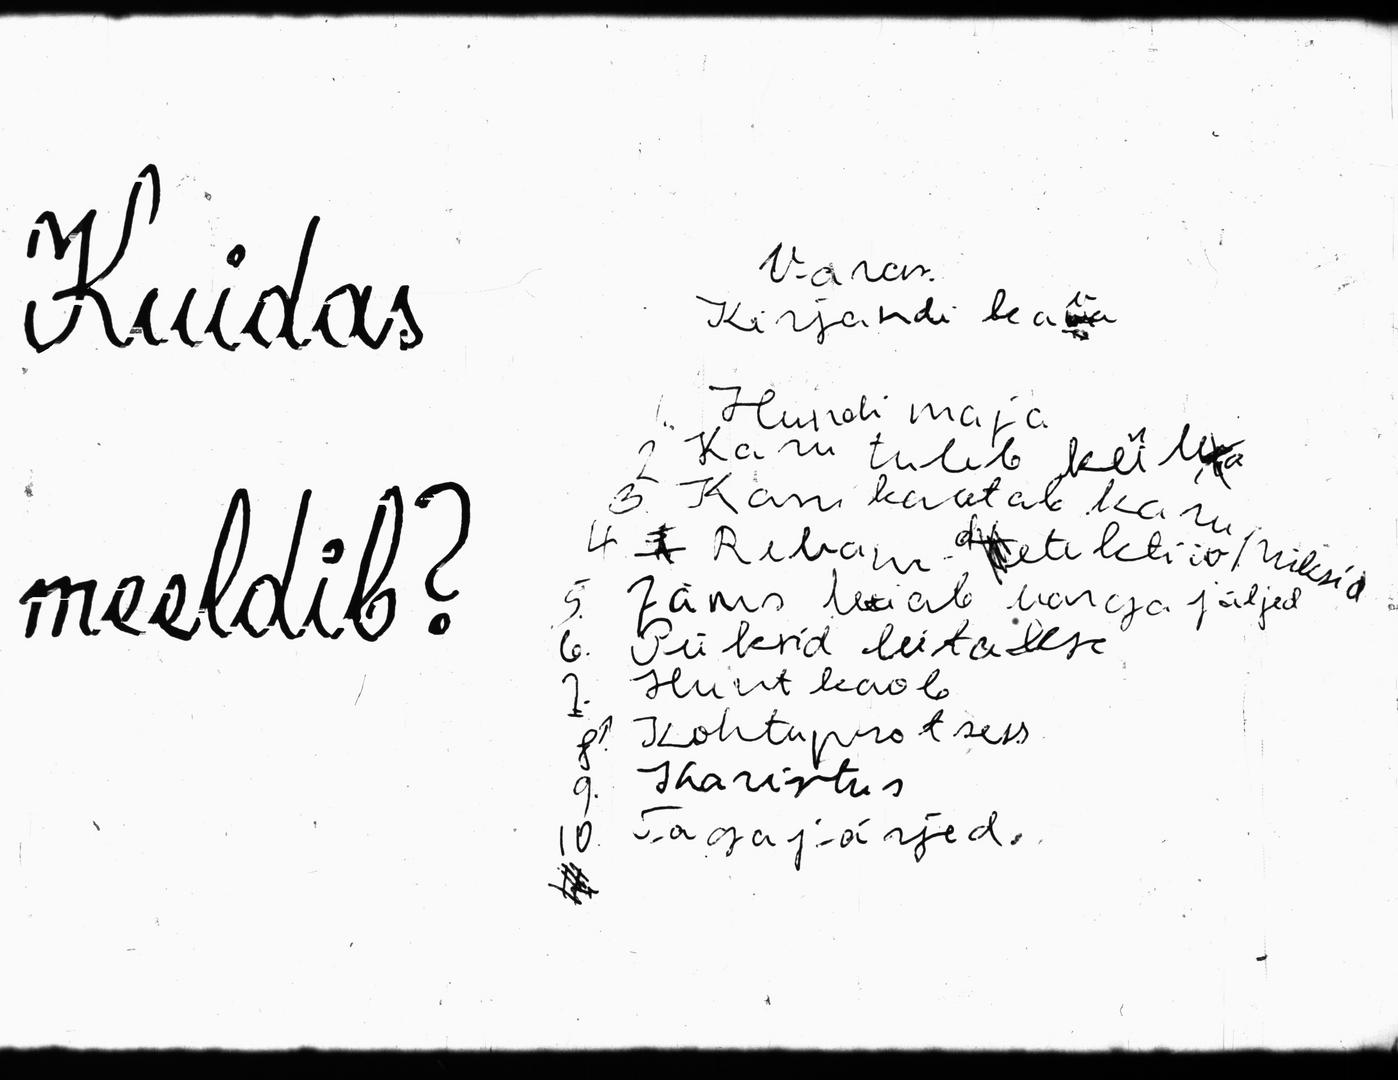 Kuidas
meeldib?
Varas.
Kirjandi kava
1. Hundi maja
2. Karu tuleb külla
3. Karu kaotab karu
4 Rebane detektiiv/niksid
5. Jänes leiab varga jäljed
6. Püksid leitakse
7. Hunt kaob
8. Kohtuprotsess
9. Karistus
10. Tagajärjed.